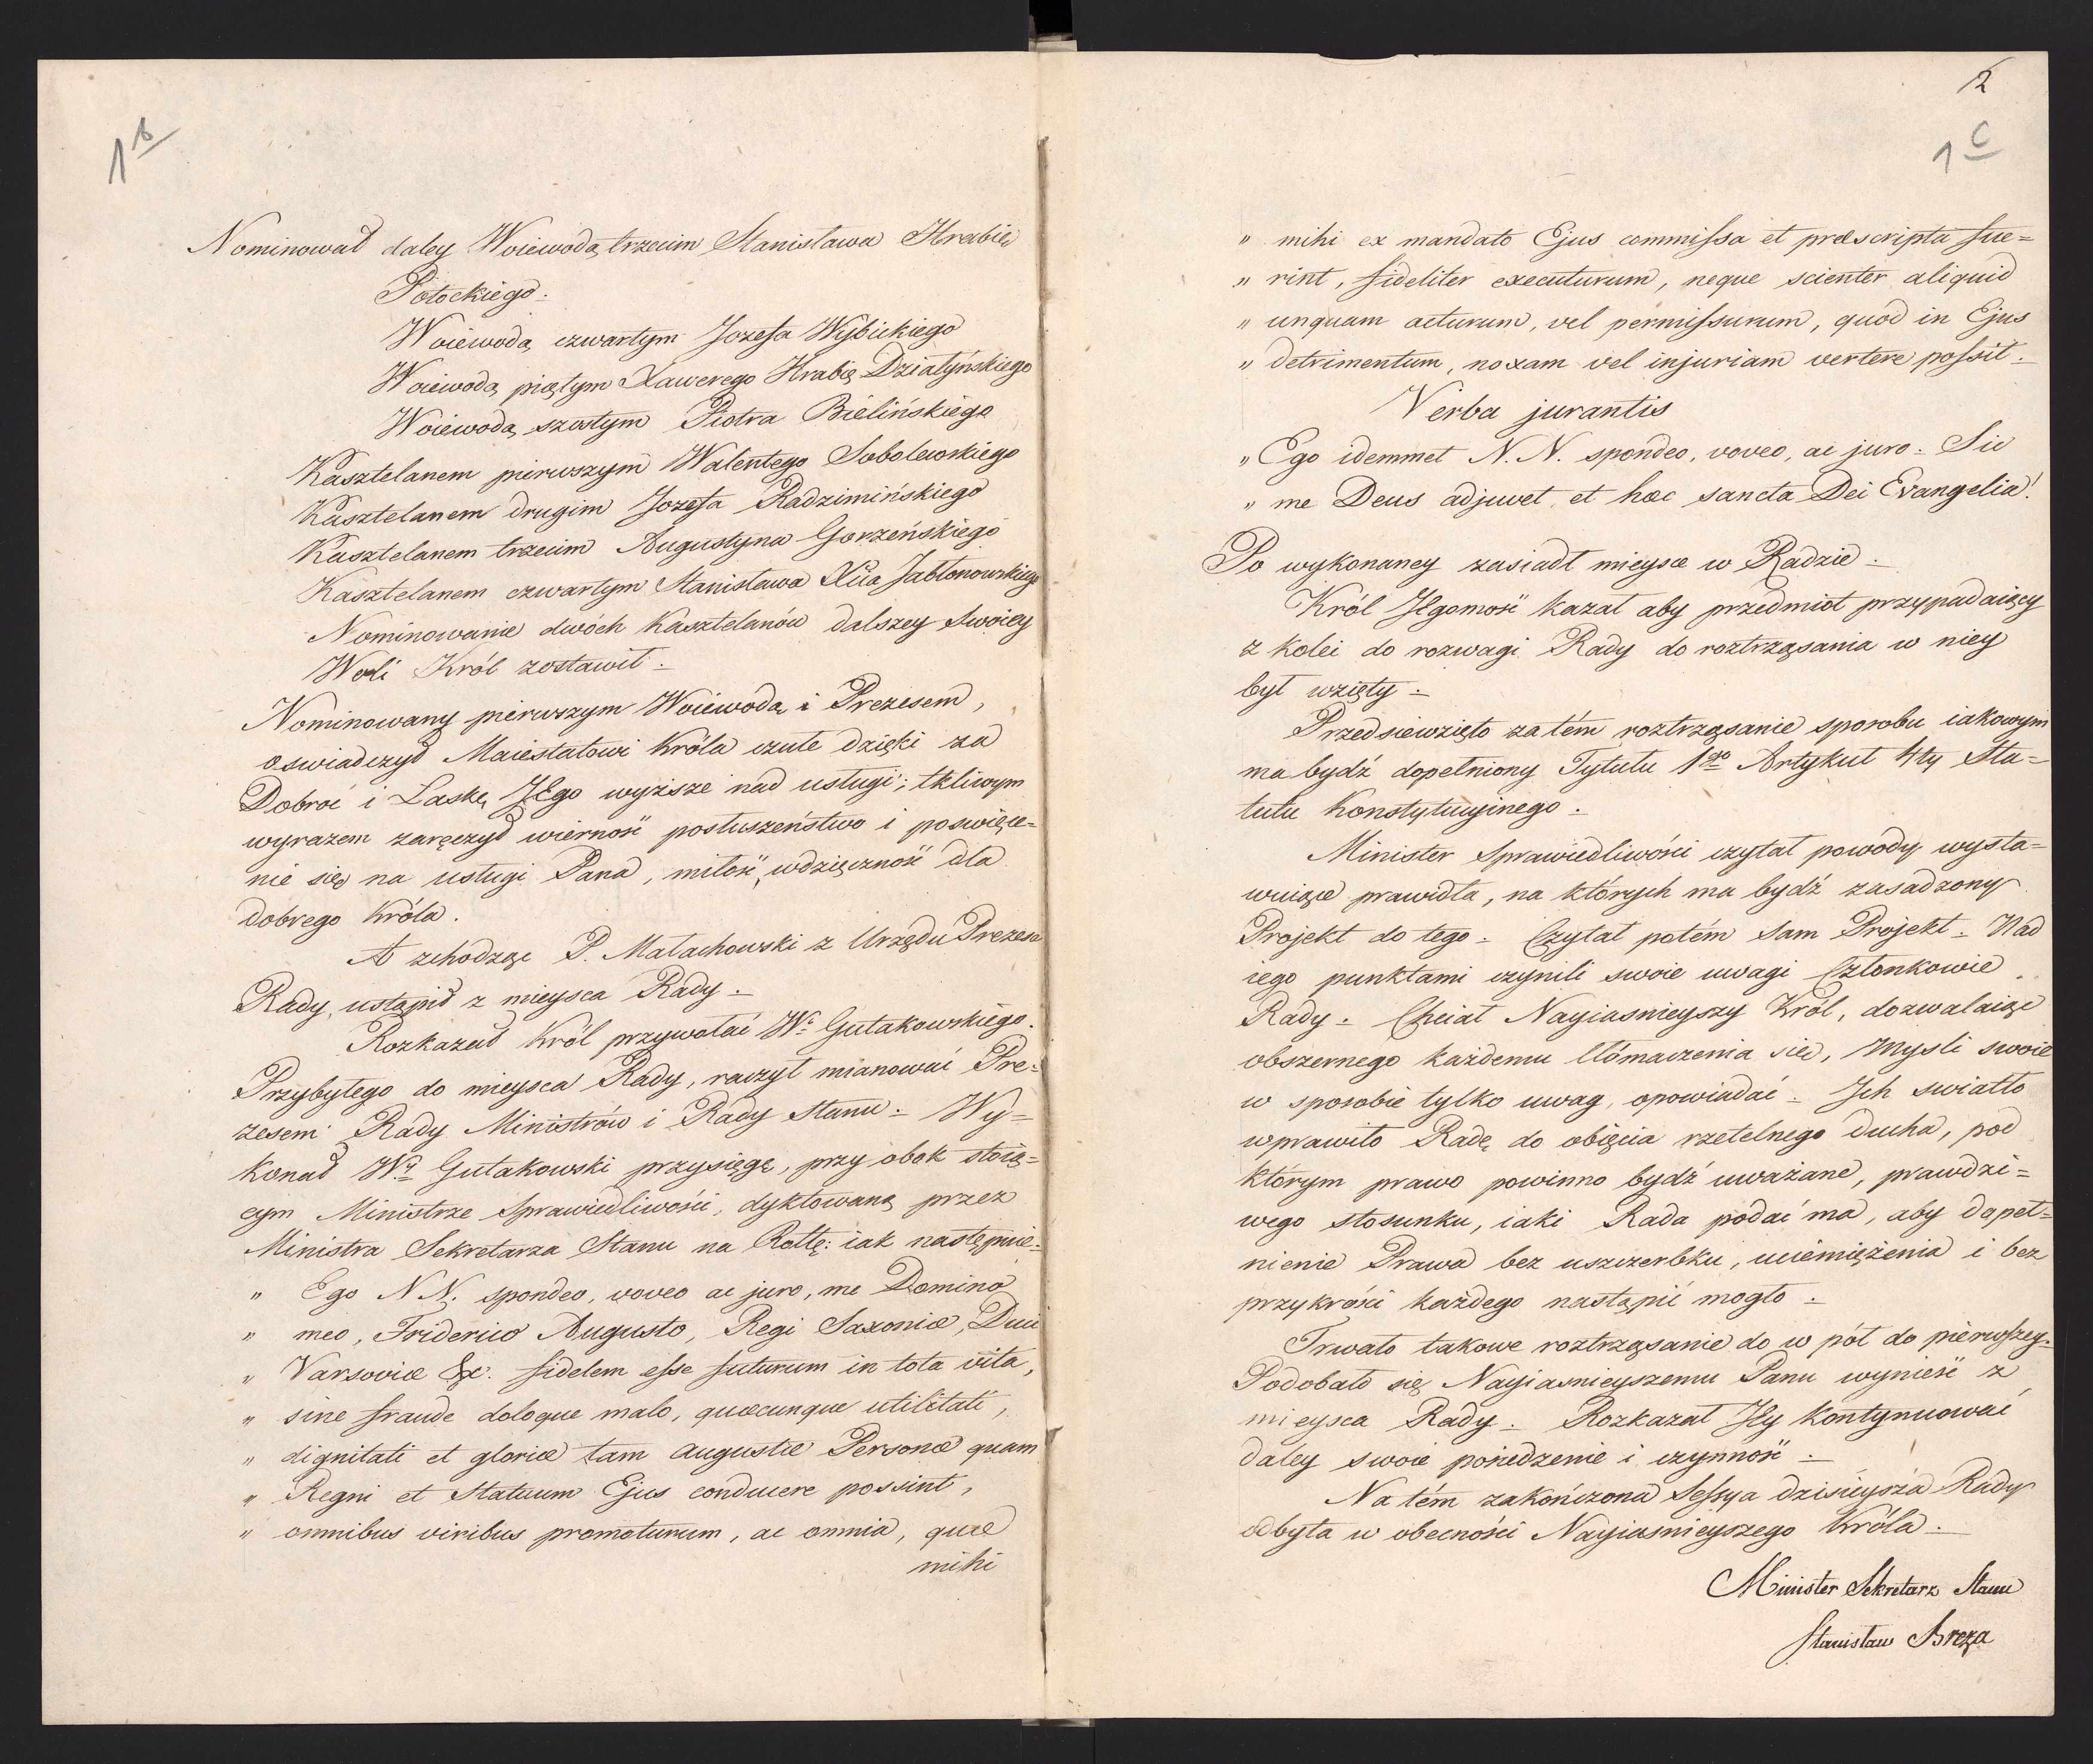 1b
Nominował daley Woiewodą trzecim Stanisława Hrabię
Potockiego.
Woiewodą czwartym Jozefa Wybickiego
Woiewodą piątym Xawerego Hrabię Działyńskiego
Woiewodą szostym Piotra Bielińskiego
Kasztelanem pierwszym Walentego Sobolewskiego
Kasztelanem drugim Jozefa Radzimińskiego
Kasztelanem trzecim Augustyna Gorzeńskiego
Kasztelanem czwartym Stanisława Xcia Jabłonowskiego
Nominowanie dwóch Kasztelanów dalszey Swoiey
Woli Król zostawił.
Nominowany pierwszym Woiewodą i Prezesem,
oswiadczył Maiestatowi Króla czułe dzięki za
Dobroć i Łaskę JEgo wyższe nad usługi; tkliwym
wyrazem zaręczył wierność posłuszeństwo i poswięce=
nie się na usługi Pana, miłość, wdzięczność dla
dobrego Króla.
A zchodząc P. Małachowski z Urzędu Prezesa
Rady, ustąpił z mieysca Rady.
Rozkazał Król przywołać Wo Gutakowskiego.
Przybyłego do mieysca Rady, raczył mianować Pre=
zesem Rady Ministrów i Rady Stanu. Wy=
konał Wy Gutakowski przysięgę, przy obok stoią=
cym Ministrze Sprawiedliwości, dyktowaną przez
Ministra Sekretarza Stanu na Rottę: iak następuie.
" Ego N N. spondeo, voveo ac juro, me Domino
" meo, Friderico Augusto, Regi Saxoniæ, Duci
" Varsoviæ &c. fidelem esse futurum in tota vita,
" sine fraude doloque malo, quæcunque utilitati,
" dignitati et gloriæ tam augustæ Personæ quam
" Regni et Statuum Ejus conducere possint,
" omnibus viribus promoturum, ac omnia, quæ
mihi
2
1c
" mihi ex mandato Ejus commissa et præscripta fue=
" rint, fideliter executurum, neque scienter aliquid
" unquam acturum, vel permissurum, quod in Ejus
" detrimentum, noxam vel injuriam vertere possit.
Verba jurantis
" Ego idemmet N. N. spondeo, voveo, ac juro: Sic
" me Deus adjuvet, et hæc sancta Dei Evangelia!
Po wykonaney zasiadł mieysce w Radzie.
Król JEgomość kazał aby przedmiot przypadaiący
z kolei do rozwagi Rady do roztrząsania w niey
był wzięty.
Przedsiewzięto zatém roztrząsanie sposobu iakowym
ma bydź dopełniony Tytułu 1go Artykuł 4ty Sta=
tutu Konstytucyinego.
Minister Sprawiedliwości czytał powody wysta=
wuiące prawidła, na których ma bydź zasadzony
Projekt do tego. Czytał potém Sam Projekt. Nad
iego punktami czynili swoie uwagi Członkowie
Rady. Chciał Nayiasnieyszy Król, dozwalaiąc
obszernego każdemu tłómaczenia się, Mysli swoie
w sposobie tylko uwag, opowiadać. Ich swiatło
wprawiło Radę do obięcia rzetelnego ducha, pod
którym prawo powinno bydź uważane, prawdzi=
wego stosunku, iaki Rada podać ma, aby dopeł=
nienie Prawa bez uszczerbku, uciemiężenia i bez
przykrości każdego nastąpić mogło.
Trwało takowe roztrząsanie do w pół do pierwszey.
Podobało się Nayiasnieyszemu Panu wynieść z
mieysca Rady. Rozkazał Jey kontynuować
daley swoie posiedzenie i czynność.
Na tém zakończona Sessya dzisieysza Rady
odbyta w obecności Nayiasnieyszego Króla.
Minister Sekretarz Stanu
Stanisław Breza